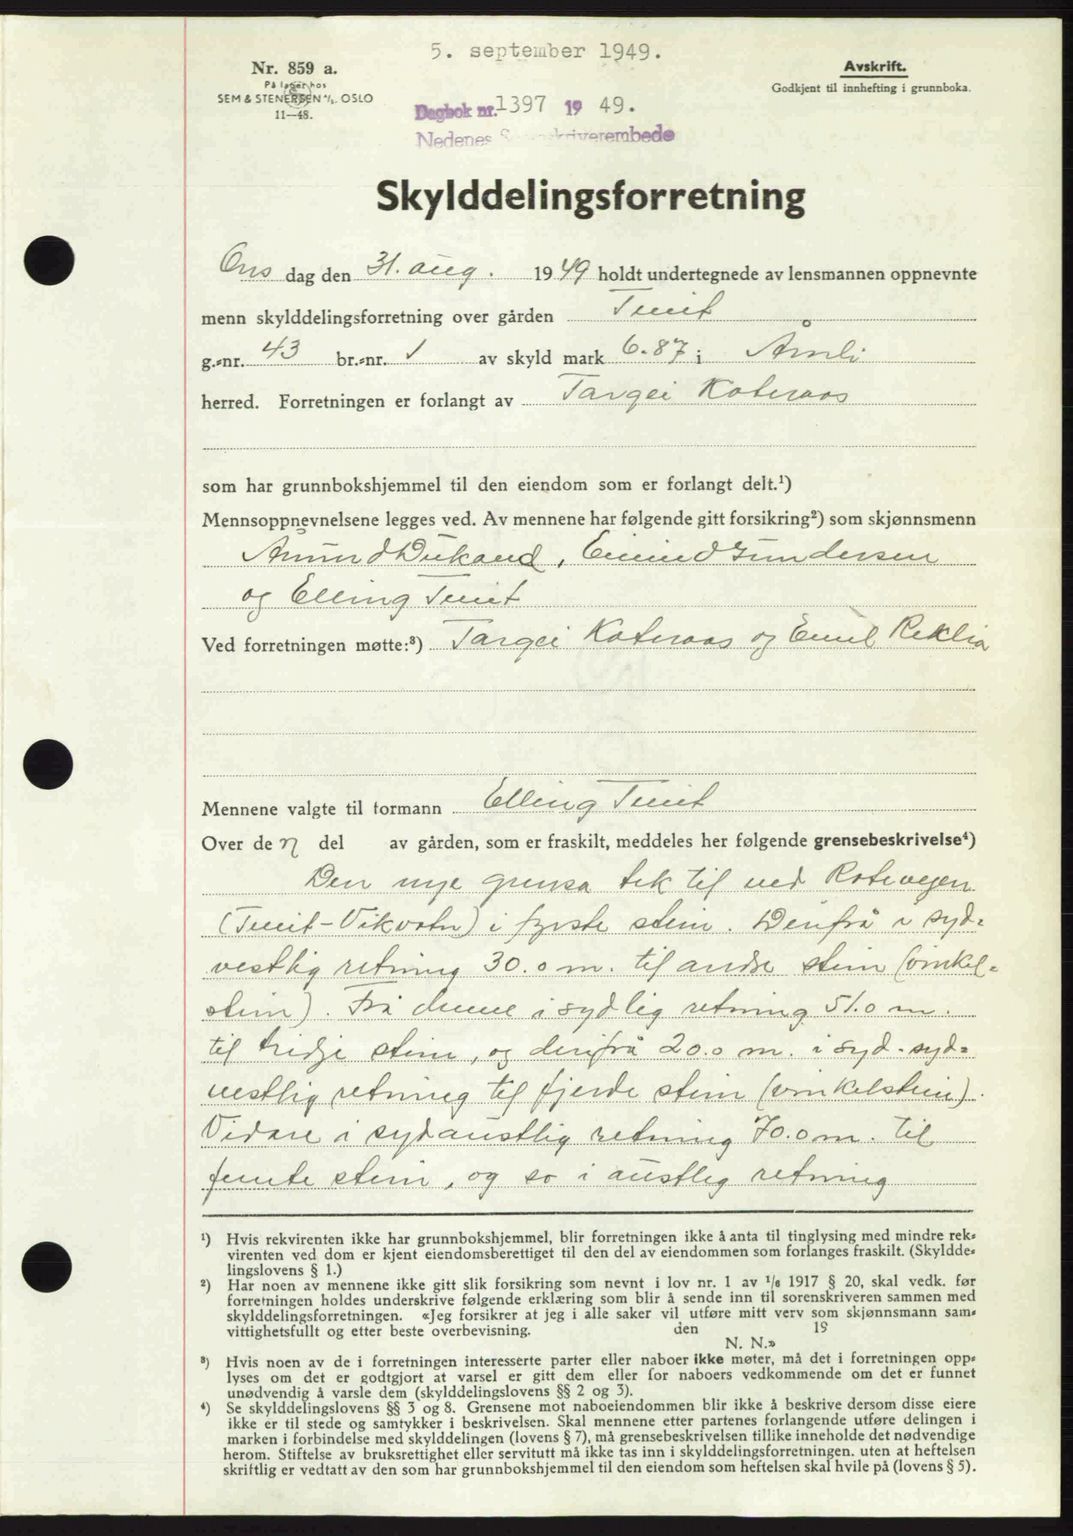 5. september 1949.
Nr. 859 a.
På lager hos
SEM & STENERSEN A/S. OSLO
11—48.
Avskrift.
Godkjent til innhefting i grunnboka.
Dagbok nr. 1397 19 49.
Nedenes Sorenskriverembede
Skylddelingsforretning
Ons dag den 31. aug. 1949 holdt undertegnede av lensmannen oppnevnte
menn skylddelingsforretning over gården Tveit
g.-nr. 43 br.-nr. 1 av skyld mark 6.87 i Åmli
herred. Forretningen er forlangt av Targei Kateraas
som har grunnbokshjemmel til den eiendom som er forlangt delt.¹)
Mennsoppnevnelsene legges ved. Av mennene har følgende gitt forsikring²) som skjønnsmenn
Gundersen
og Elling Tveit
Ved forretningen møtte:³) Targei Kateraas og Emil
Mennene valgte til formann Elling Tveit
Over de n del av gården, som er fraskilt, meddeles her følgende grensebeskrivelse⁴)
Den nye grensa tek til ved Rotevegen
(Tveit-Vikvatn) i fyrste stein. Derifrå i syd-
vestlig retning 30.0 m. til andre stein (vinkel-
stein). Frå denne i sydlig retning 51.0 m.
til tridje stein, og derifrå 20.0 m. i syd-syd-
vestlig retning til fjerde stein (vinkelstein).
Vidare i sydaustlig retning 70.0 m. til
femte stein, og so i austlig retning
¹) Hvis rekvirenten ikke har grunnbokshjemmel, blir forretningen ikke å anta til tinglysing med mindre rek-
virenten ved dom er kjent eiendomsberettiget til den del av eiendommen som forlanges fraskilt. (Skyldde-
lingslovens § 1.)
²) Har noen av mennene ikke gitt slik forsikring som nevnt i lov nr. 1 av 1/6 1917 § 20, skal vedk. før
forretningen holdes underskrive følgende erklæring som blir å sende inn til sorenskriveren sammen med
skylddelingsforretningen. «Jeg forsikrer at jeg i alle saker vil utføre mitt verv som skjønnsmann sam-
vittighetsfullt og etter beste overbevisning. den 19
N. N.»
³) Hvis noen av de i forretningen interesserte parter eller naboer ikke møter, må det i forretningen opp-
lyses om det er godtgjort at varsel er gitt dem eller for naboers vedkommende om det er funnet
unødvendig å varsle dem (skylddelingslovens §§ 2 og 3).
⁴) Se skylddelingslovens §§ 3 og 8. Grensene mot naboeiendommen blir ikke å beskrive dersom disse eiere
ikke er til stede og samtykker i beskrivelsen. Skal mennene etter partenes forlangende utføre delingen i
marken i forbindelse med skylddelingen (lovens § 7), må grensebeskrivelsen tillike inneholde det nødvendige
herom. Stiftelse av bruksrettighet eller servitutt må ikke tas inn i skylddelingsforretningen. uten at heftelsen
skriftlig er vedtatt av den som har grunnbokshjemmel til den eiendom som heftelsen skal hvile på (lovens § 5).